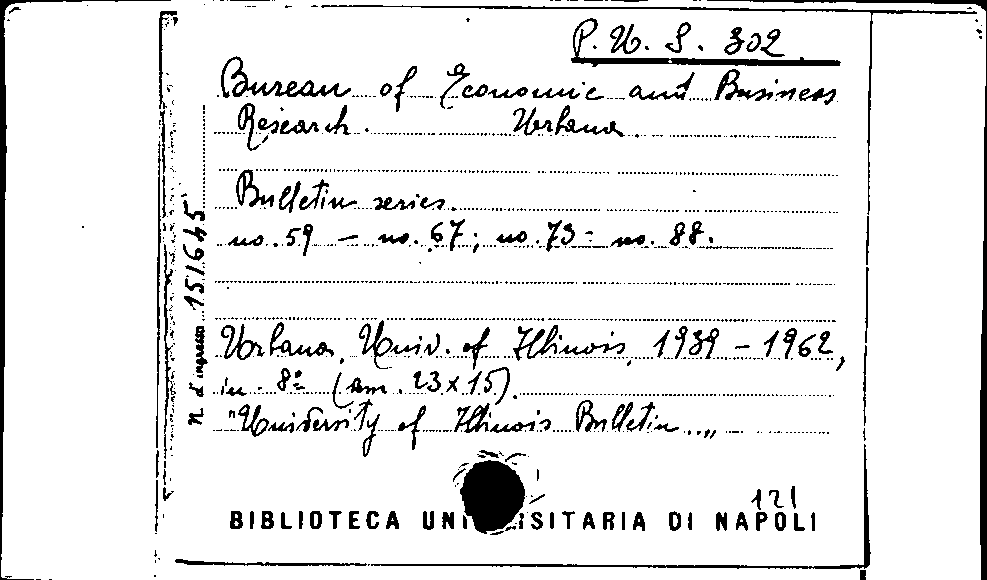 P. U. S. 302
Bureau of Economic and Business
Research. Urbana.
Bulletin series.
no. 59 – no. 67; no. 73 - no. 88.
Urbana, Univ. of Illinois, 1939 – 1962,
in 8º (cm. 23x15).
"University of Illinois Bulletin..„
N. d'ingresso 151645
121
BIBLIOTECA UNI ISITARIA DI NAPOLI